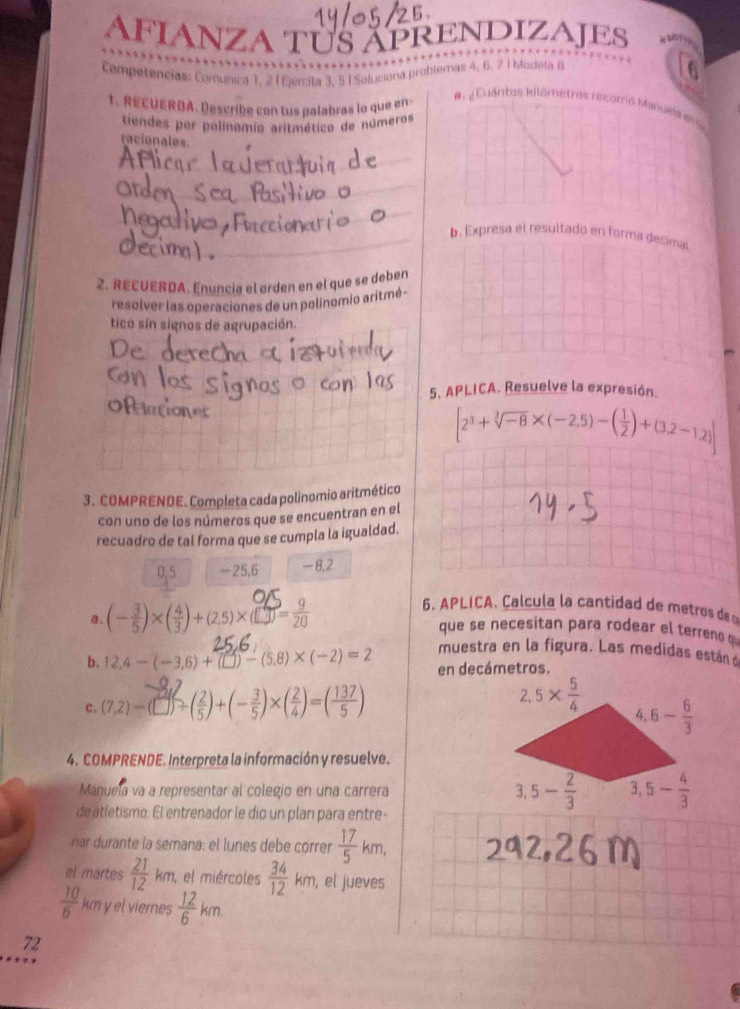 14/05/26.
AFIANZA TUS APRENDIZAJES
6
Competencias: Comunica 1, 2 I Ejercita 3, 5 I Soluciona problemas 4, 6, 7 I Modela 8
1. RECUERDA. Describe con tus palabras lo que en-
tiendes por polinomio aritmético de números
racionales.
Aplicar la Jerartuia de
orden sea Positivo o
negativo, Fraccionario o
decimal.
2. RECUERDA. Enuncia el orden en el que se deben
resolver las operaciones de un polinomio aritmé-
tico sin signos de agrupación.
De derecha a izquierda
con los signos o con las
operaciones
3. COMPRENDE. Completa cada polinomio aritmético
con uno de los números que se encuentran en el
recuadro de tal forma que se cumpla la igualdad.
0,5 −25,6 −8,2
a. (−3/5) × (4/3) + (2,5) × (□) = 9/20
0,5
b. 12,4 − (−3,6) + (□) − (5,8) × (−2) = 2
25,6
c. (7,2) − (□) ÷ (2/5) + (−3/5) × (2/4) = (137/5)
-8,2
4. COMPRENDE. Interpreta la información y resuelve.
Manuela va a representar al colegio en una carrera
de atletismo. El entrenador le dio un plan para entre-
nar durante la semana: el lunes debe correr 17/5 km,
el martes 21/12 km, el miércoles 34/12 km, el jueves
10/6 km y el viernes 12/6 km.
72
a. ¿Cuántos kilómetros recorrió Manuela en
b. Expresa el resultado en forma decimal.
5. APLICA. Resuelve la expresión.
[2³ + ∛−8 × (−2,5) − (1/2) + (3,2 − 1,2)]
14.5
6. APLICA. Calcula la cantidad de metros de
que se necesitan para rodear el terreno
muestra en la figura. Las medidas están
en decámetros.
2,5 × 5/4
4,6 − 6/3
3,5 − 2/3
3,5 − 4/3
292,26 m